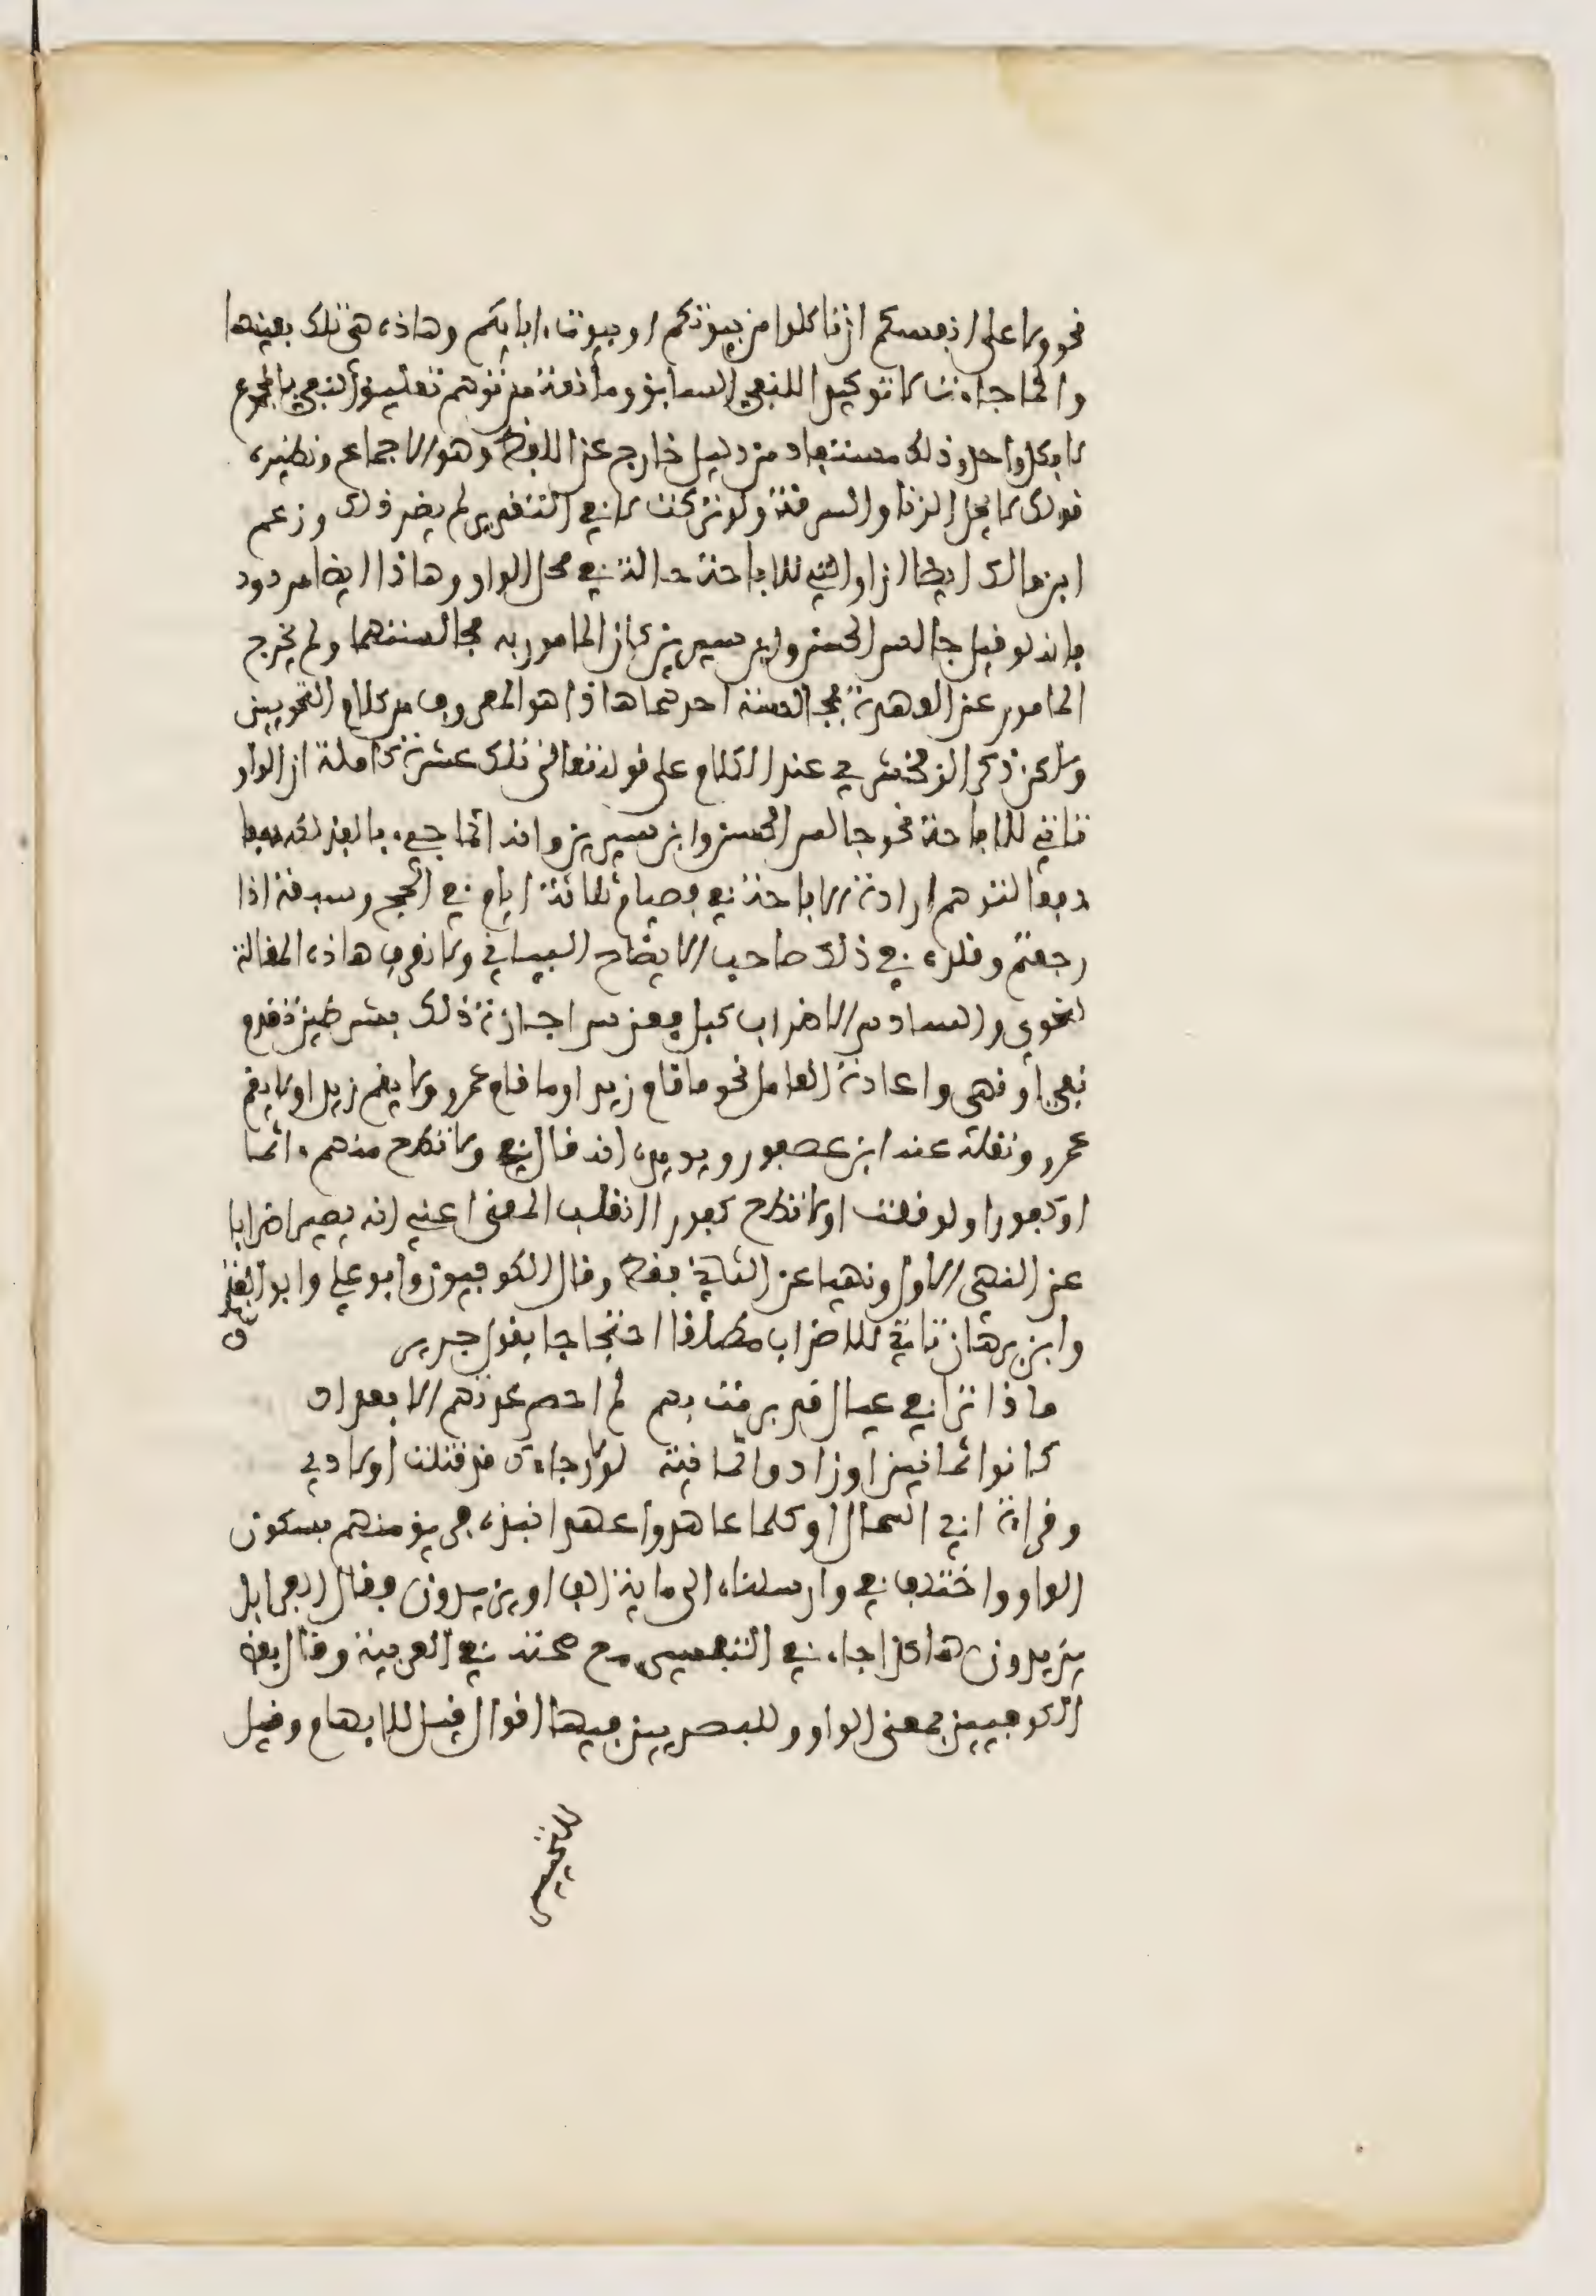 نحو ولا على انفسكم ان تاكلوا من بيوتكم او بيوت ءابايكم وهاذه هى تلك بعينها
وانما جاءت لا توكيدا للنفي السابق ومانعة من توهم تعليق النفي بالمجموع
لا بكل واحد وذلك مستفاد من دليل خارج عن اللفظ وهو الاجماع ونظيره
قولك لا يحل الزنا والسرقة ولو تركت لا في التقدير لم يضر ذلك وزعم
ابن مالك ايضا ان او التي للاباحة حالة في محل الواو وهاذا ايضا مردود
بانه لو قيل جالس الحسن وابن سيرين كان المامور به مجالستهما ولم يخرج
المامور عن العهدة بمجالسة احدهما هاذا هو المعروف من كلام النحويين
ولاكن ذكر الزمخشري عند الكلام على قوله تعالى تلك عشرة كاملة ان الواو
تاتي للاباحة نحو جالس الحسن وابن سيرين وانه انما جيء بالفذلكة دفعا
دفعا لتوهم ارادة الاباحة في فصيام ثلاثة ايام في الحج وسبعة اذا
رجعتم وقلده في ذلك صاحب الايضاح البياني ولا نعرف هاذه المقالة
لنحوي والسادس الاضراب كبل فعن س اجازة ذلك بشرطين تقدم
نفي او نهي واعادة العامل نحو ما قام زيد او ما قام عمرو ولا يقم زيد او لا يقم
عمرو ونقله عنه ابن عصفور ويويده انه قال في ولا تطع منهم ءاثما
او كفورا ولو قلت او لا تطع كفورا انقلب المعنى اعني انه يصير اضرابا
عن النهي الاول ونهيا عن الثاني فقط وقال الكوفيون وابو علي وابو الفتح
وابن برهان تاتي للاضراب مطلقا احتجاجا بقول جرير
ماذا ترا في عيال قد برمت بهم لم احص عدتهم الا بعداد
كانوا ثمانين او زادوا ثمانية لولا رجاءك قد قتلت اولادي
وقراءة ابي السمال او كلما عاهدوا عهدا نبذه فريق منهم بسكون
الواو واختلف في وارسلناه الى ماية الف او يزيدون فقال الفرا بل
يزيدون هاكذا جاء في التفسير مع صحته في العربية وقال بعض
الكوفيين بمعنى الواو وللبصريين فيها اقوال قيل للابهام وقيل
للتخيير